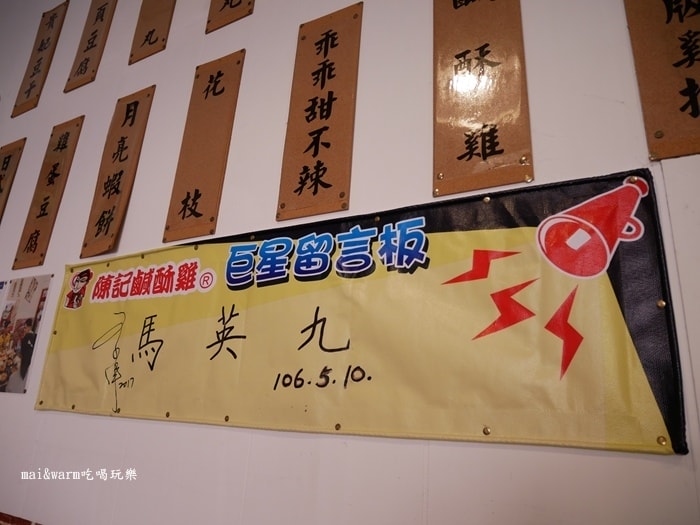 貴妃豆干
頁豆腐
丸
丸
鹹酥雞
雞蛋豆腐
月亮蝦餅
花枝
乖乖甜不辣
陳記鹹酥雞®
巨星留言板
馬英九
2017
106.5.10.
mai&warm吃喝玩樂